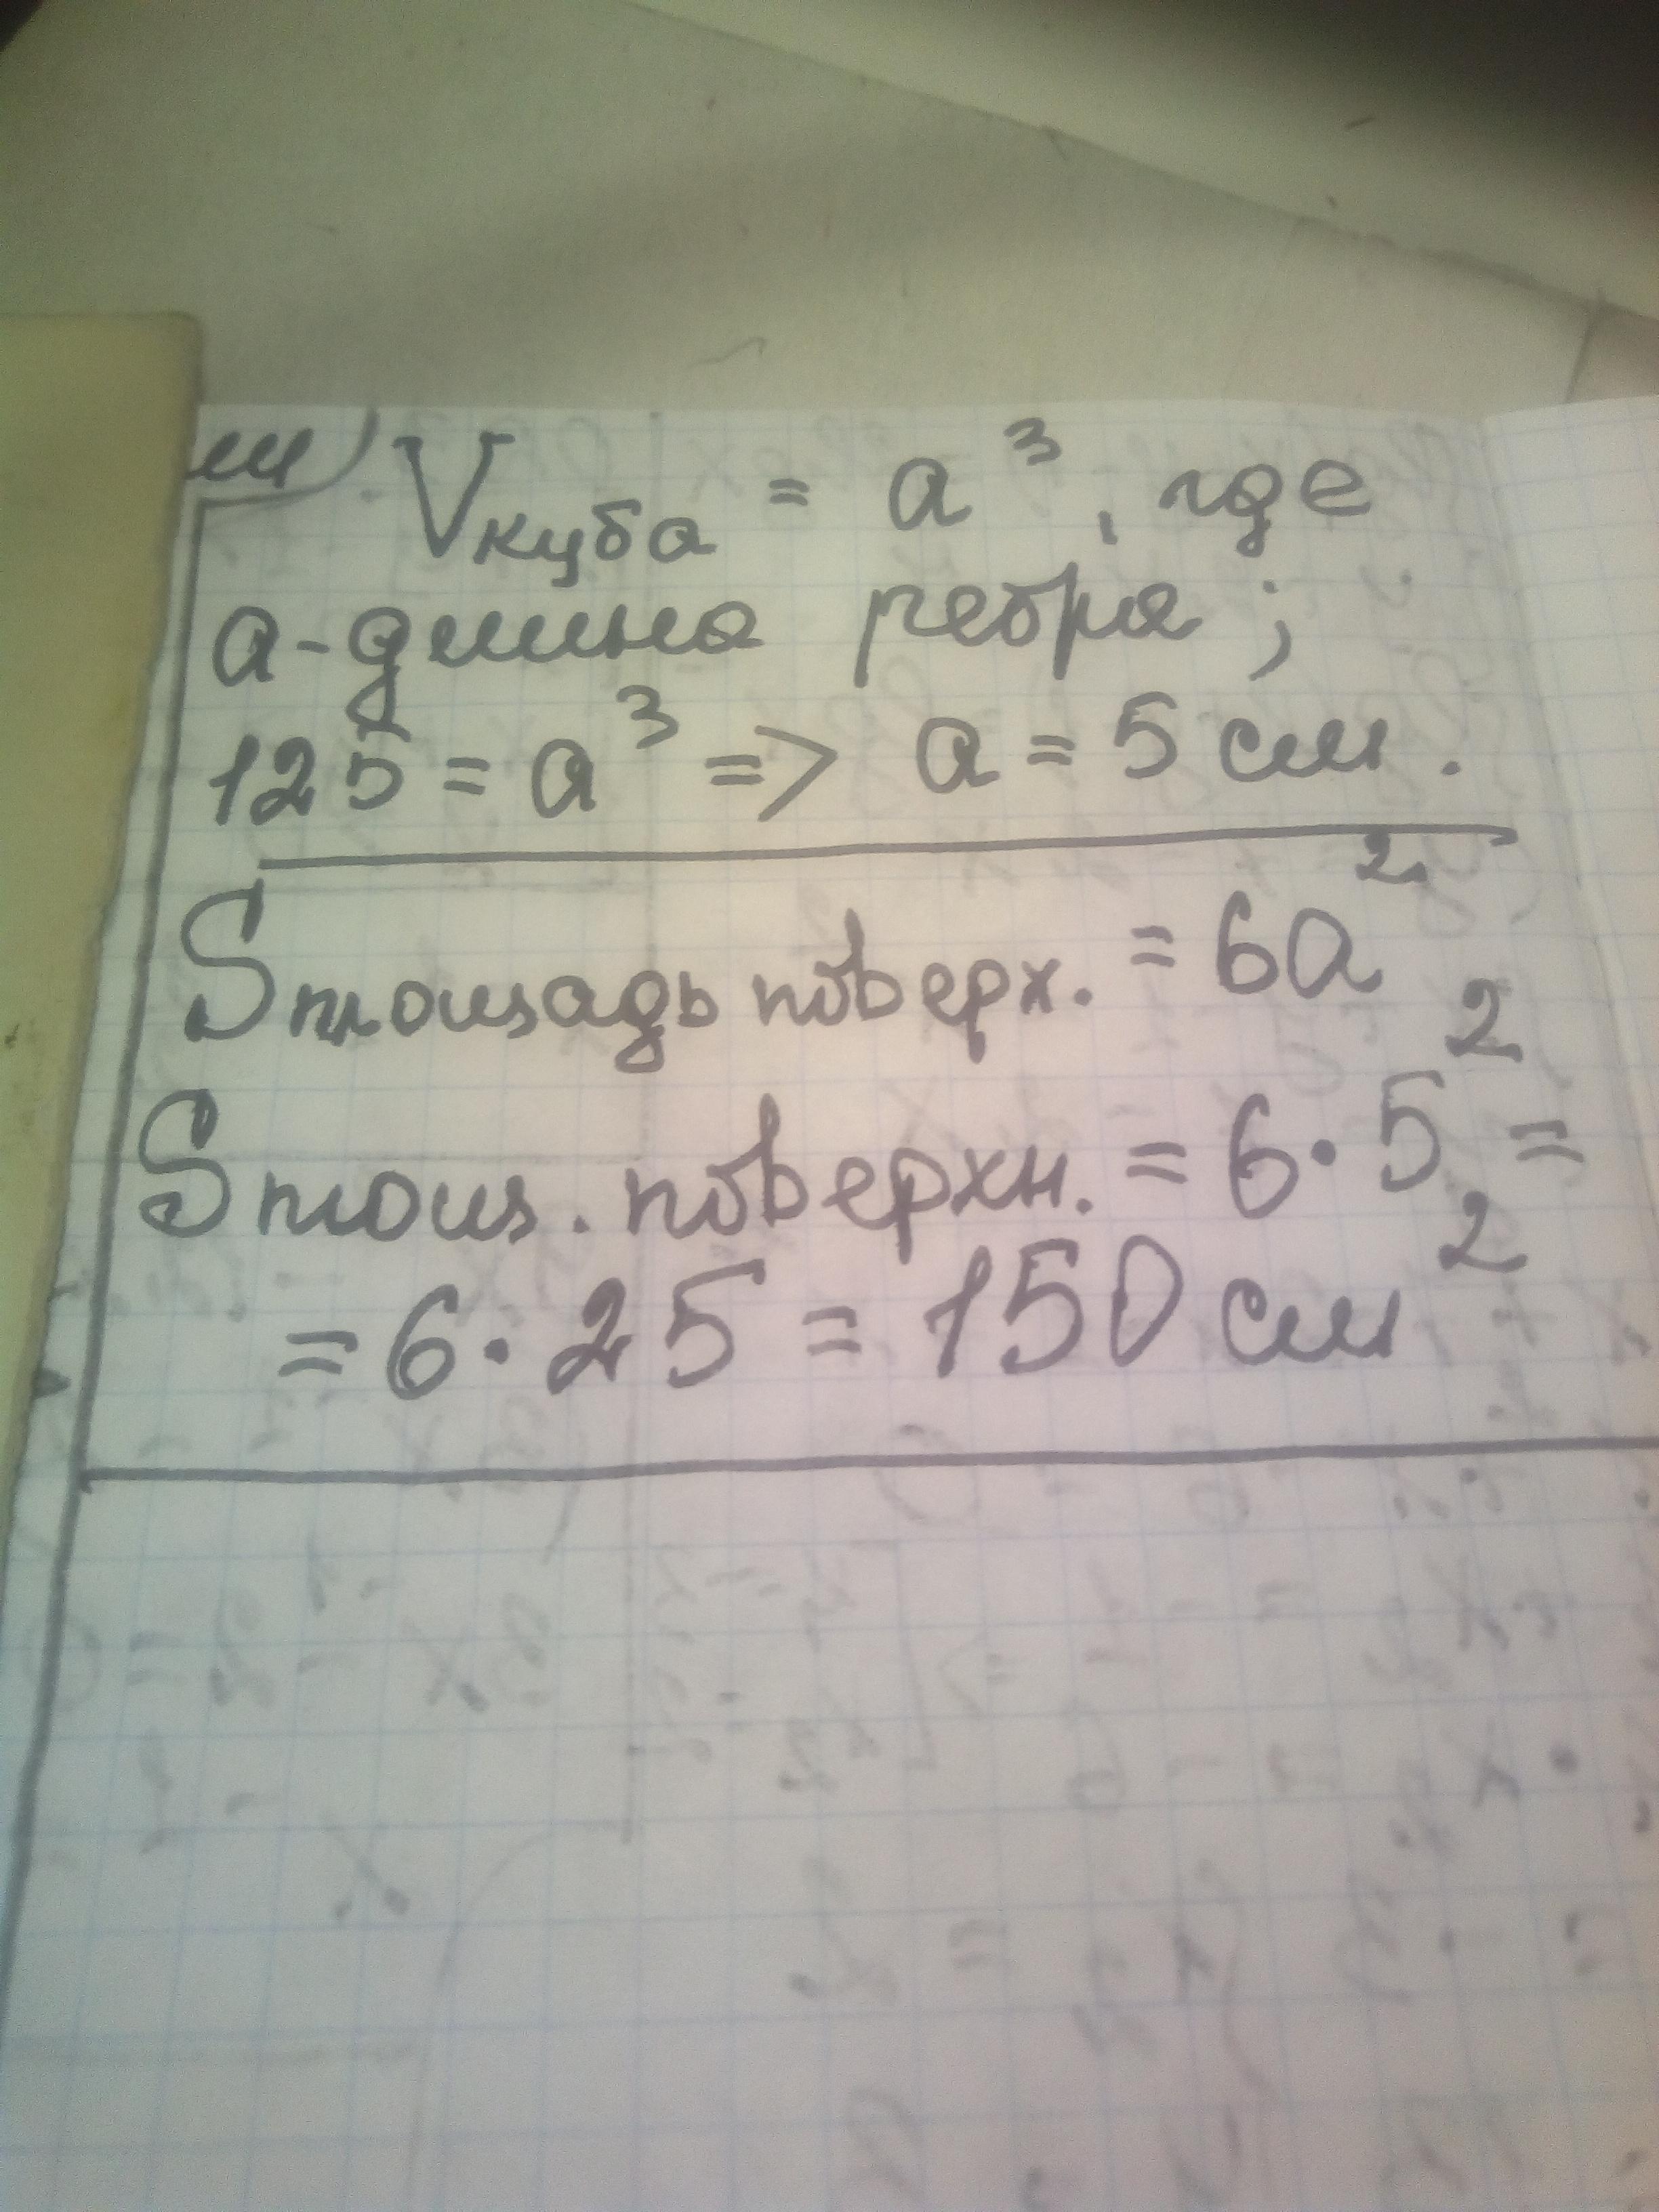 V куба = a³, где
a - длина ребра;
125 = a³ => a = 5 см.
S площадь поверх. = 6a²
S площ. поверхн. = 6 · 5² =
= 6 · 25 = 150 см²